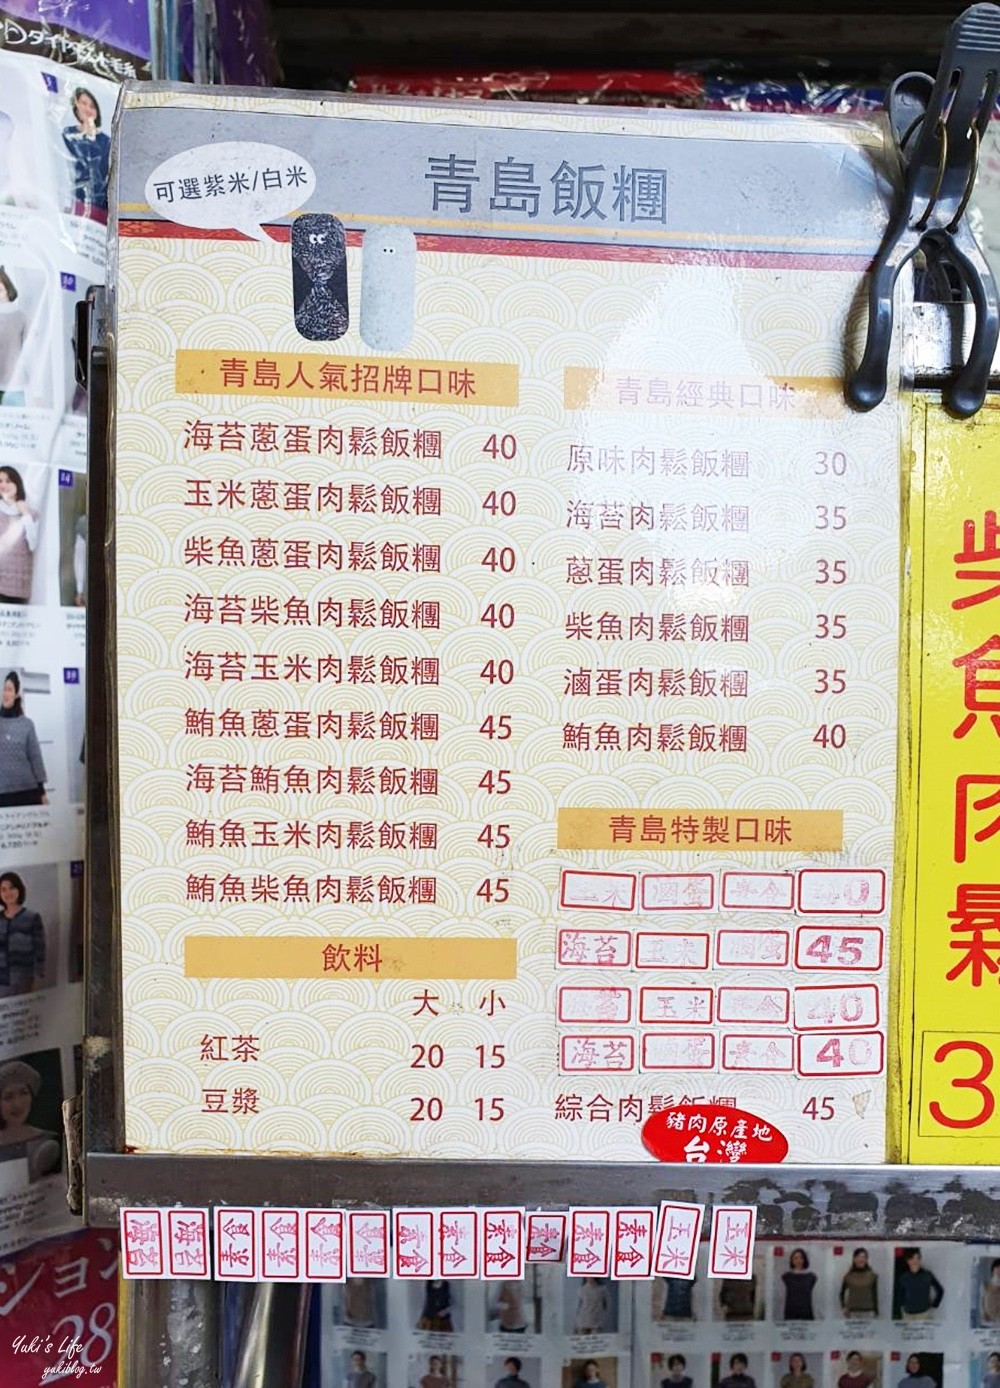 ダイヤモンド毛糸
可選紫米/白米
青島飯糰
青島人氣招牌口味
海苔蔥蛋肉鬆飯糰 40
玉米蔥蛋肉鬆飯糰 40
柴魚蔥蛋肉鬆飯糰 40
海苔柴魚肉鬆飯糰 40
海苔玉米肉鬆飯糰 40
鮪魚蔥蛋肉鬆飯糰 45
海苔鮪魚肉鬆飯糰 45
鮪魚玉米肉鬆飯糰 45
鮪魚柴魚肉鬆飯糰 45
飲料
大 小
紅茶 20 15
豆漿 20 15
青島經典口味
原味肉鬆飯糰 30
海苔肉鬆飯糰 35
蔥蛋肉鬆飯糰 35
柴魚肉鬆飯糰 35
滷蛋肉鬆飯糰 35
鮪魚肉鬆飯糰 40
青島特製口味
玉米 滷蛋 素食 40
海苔 玉米 滷蛋 45
海苔 玉米 素食 40
海苔 滷蛋 素食 40
綜合肉鬆飯糰 45
豬肉原產地
台灣
柴魚肉鬆
3
海苔 海苔 素食 素食 素食 素食 素食 素食 素食 素食 素食 素食 玉米 玉米
ション
38
Yuki's Life
yukiblog.tw